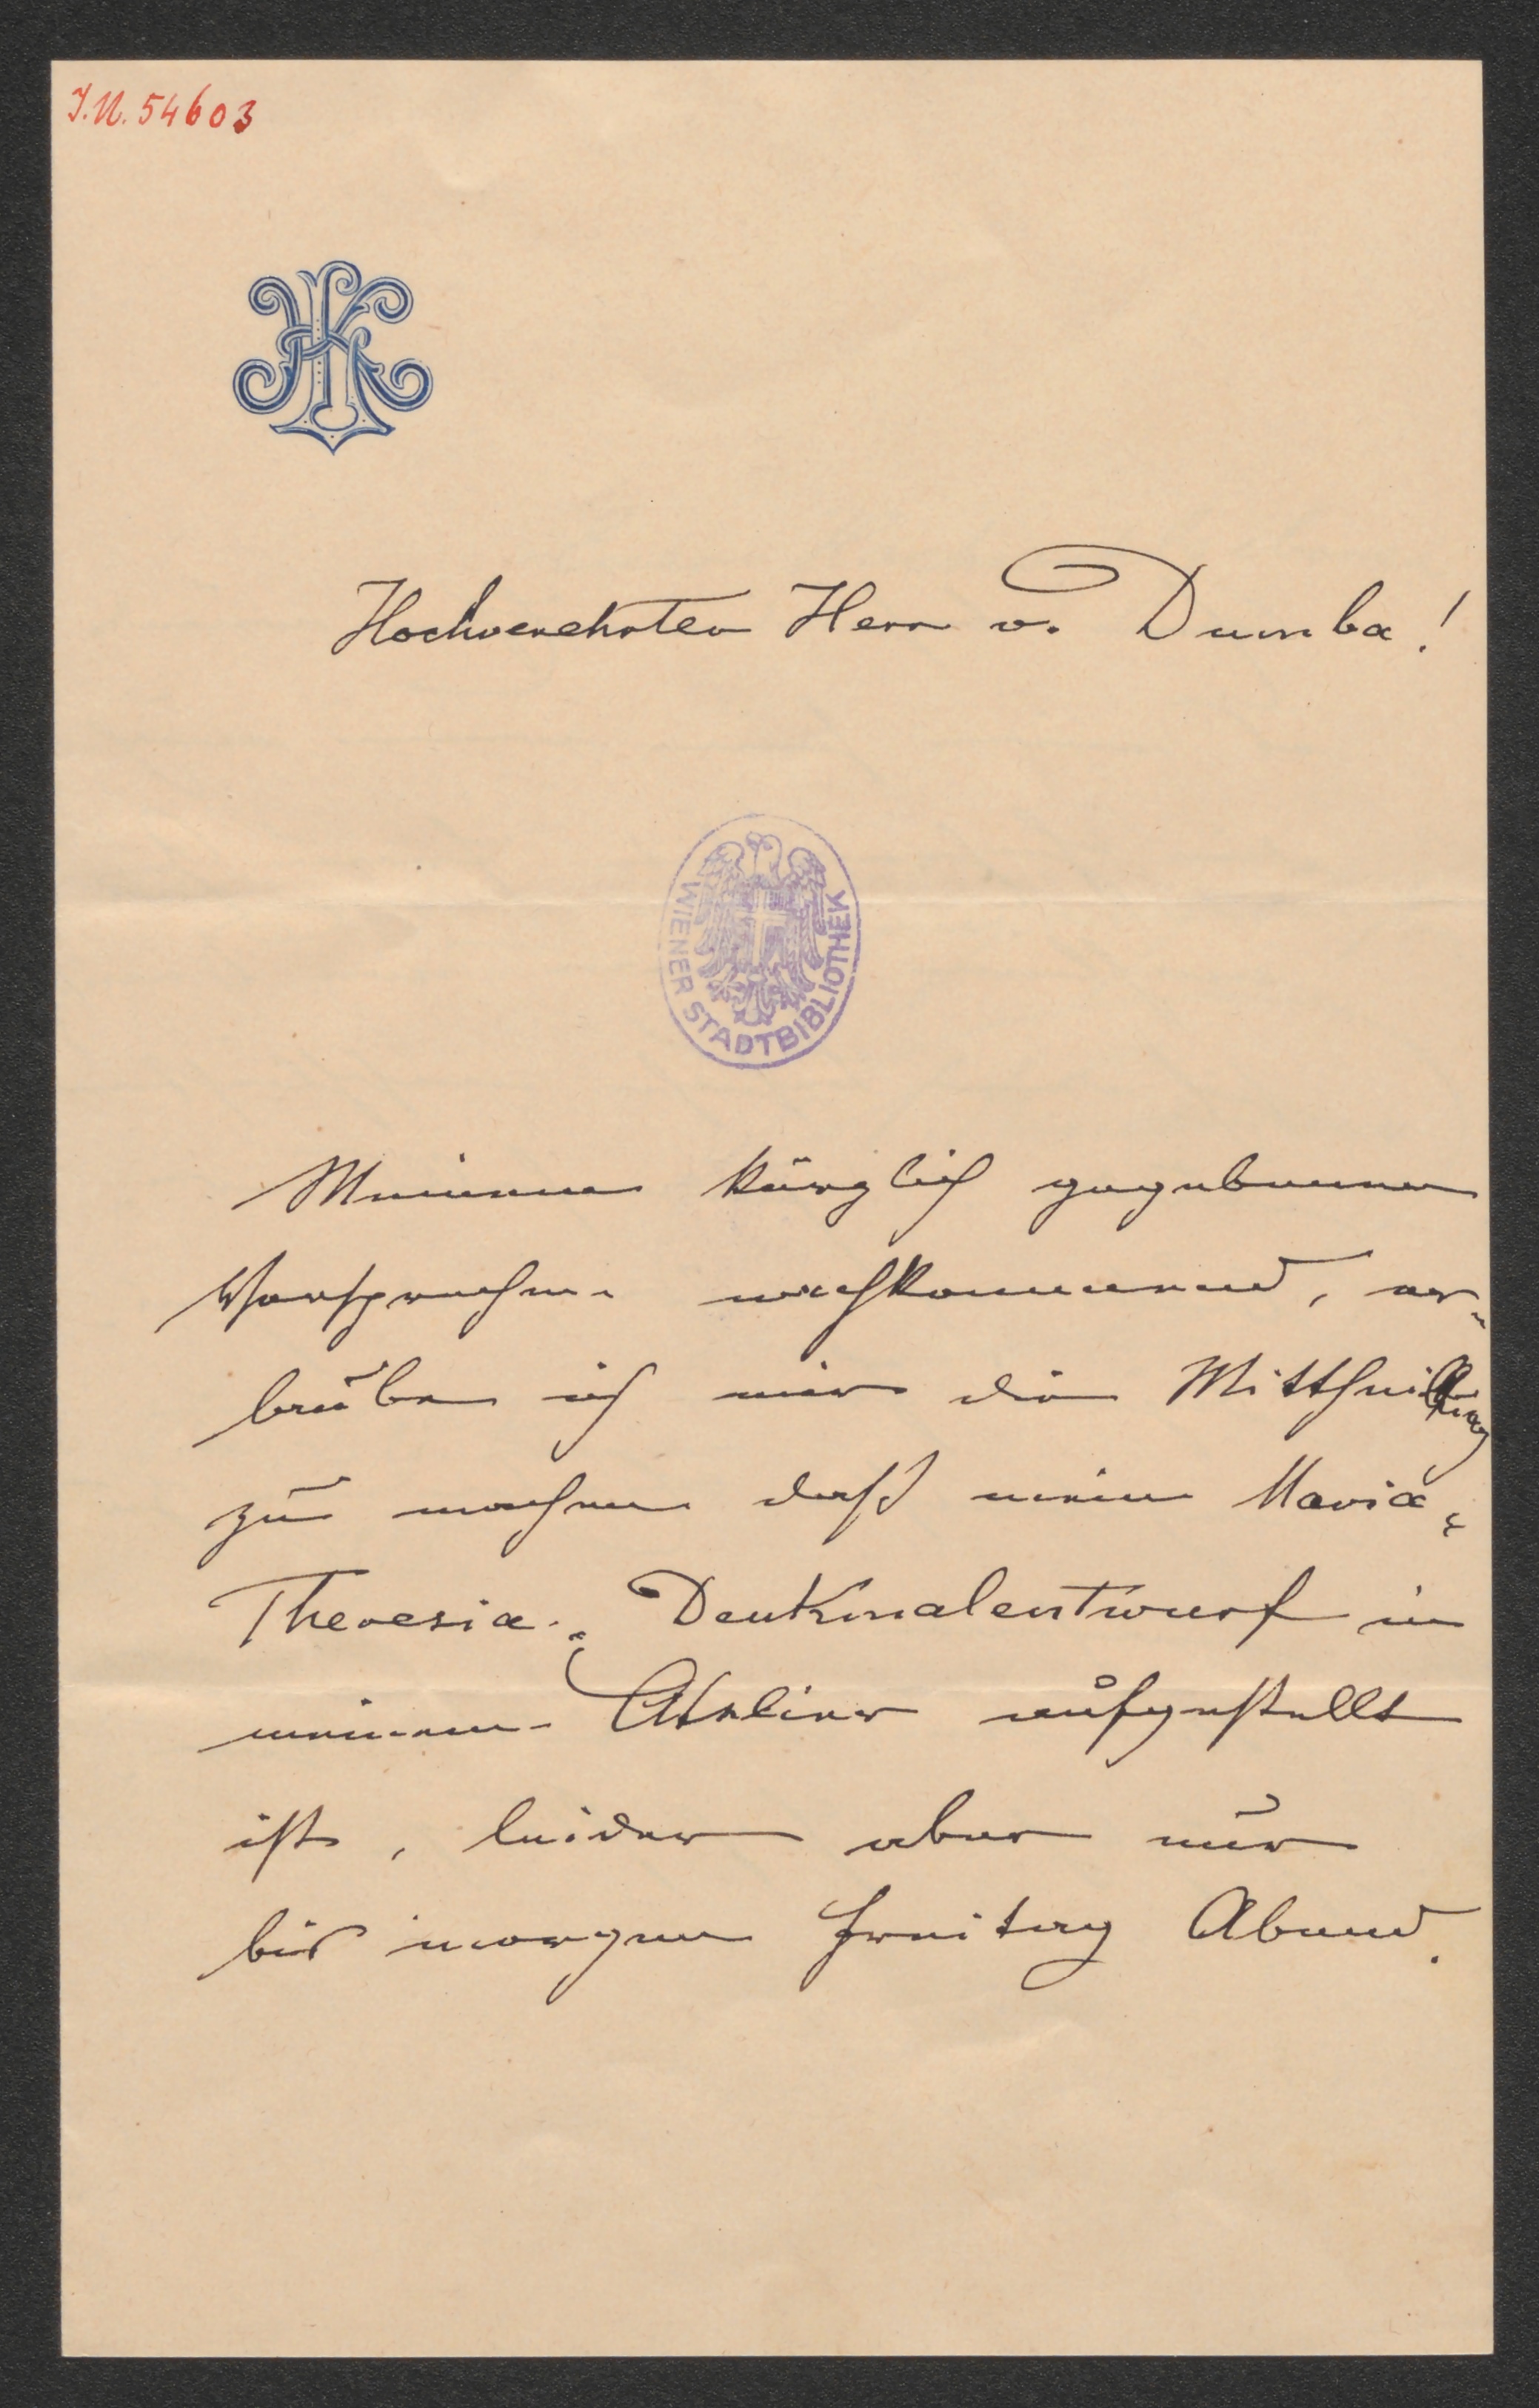 J.N. 54603
Hochverehrter Herr v. Dumba!
WIENER STADTBIBLIOTHEK
Meinem kürzlich gegebenen
Versprechen nachkommend, er-
laube ich mir die Mittheilung
zu machen daß mein Maria-
Theresia-Denkmalentwurf in
meinem Atelier aufgestellt
ist, leider aber nur
bis morgen Freitag Abend.